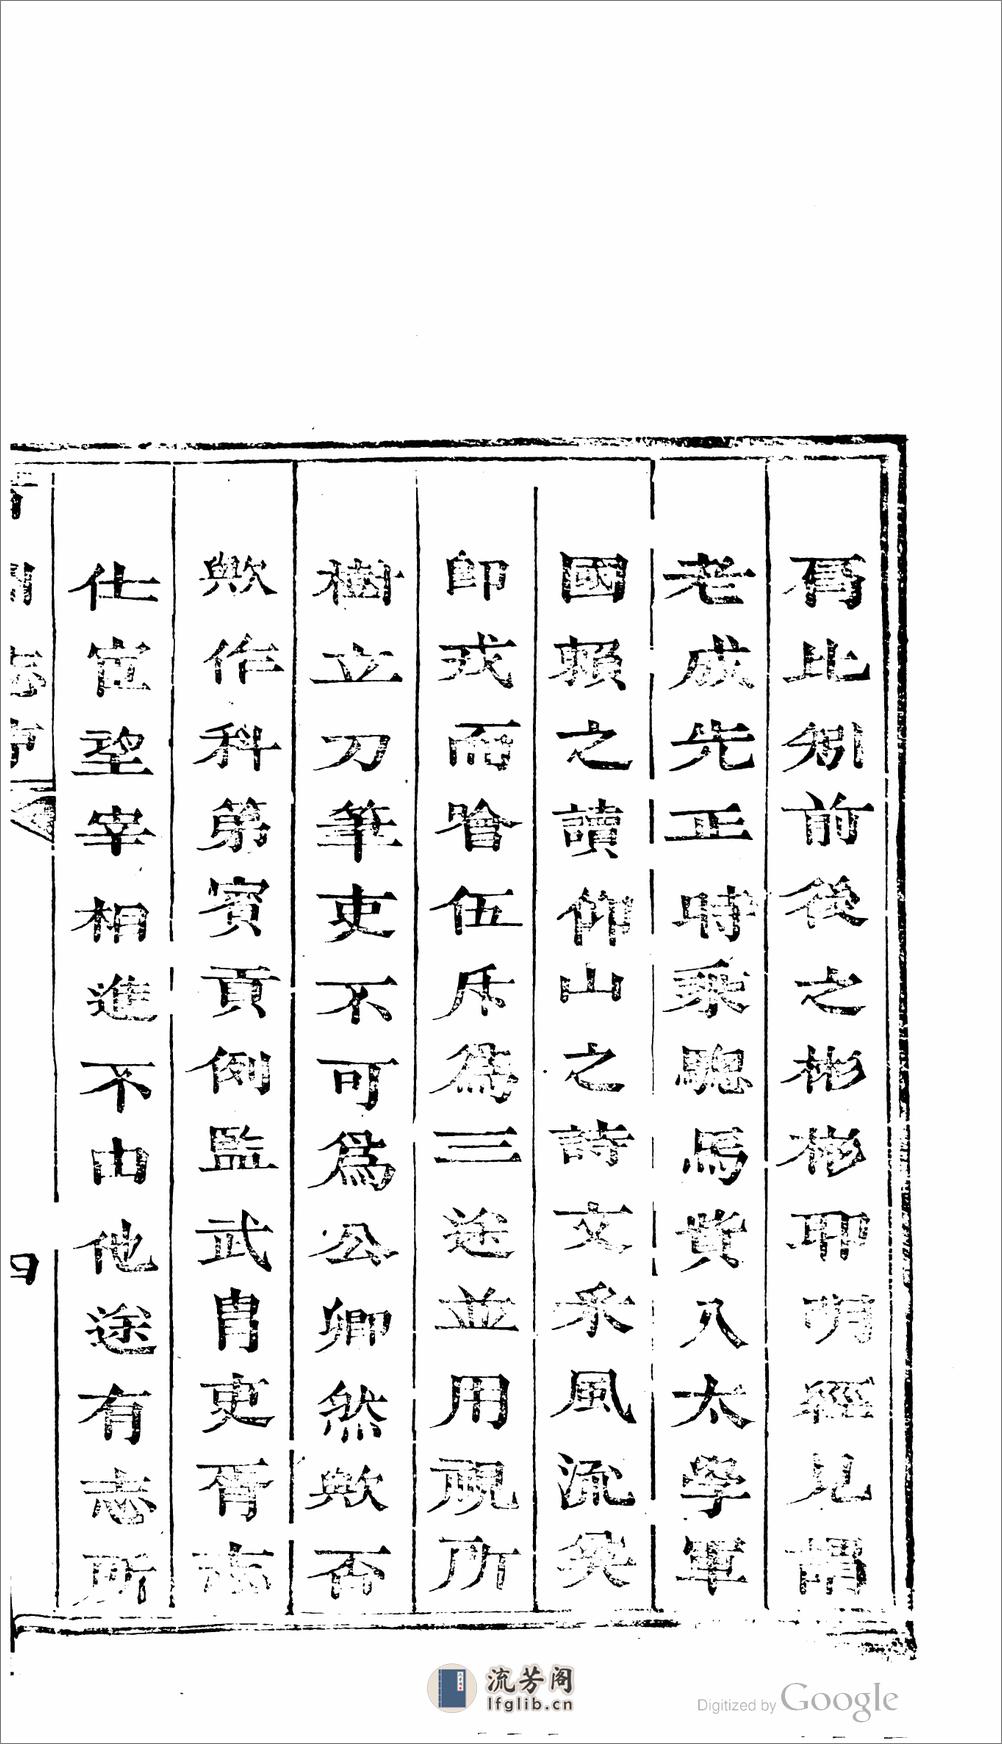 爲比剡前後之彬彬耶明經見謂
老成先正時乘驄馬貲入太學軍
國賴之讀仰山之詩文釆風流矣
即戎而噲伍斥爲三途並用視所
樹立刀筆吏不可爲公卿然歟否
歟作科第賓貢例監武胄吏胥志
仕宦望宰相進不由他途有志所
流芳阁
lfglib.cn
Digitized by Google